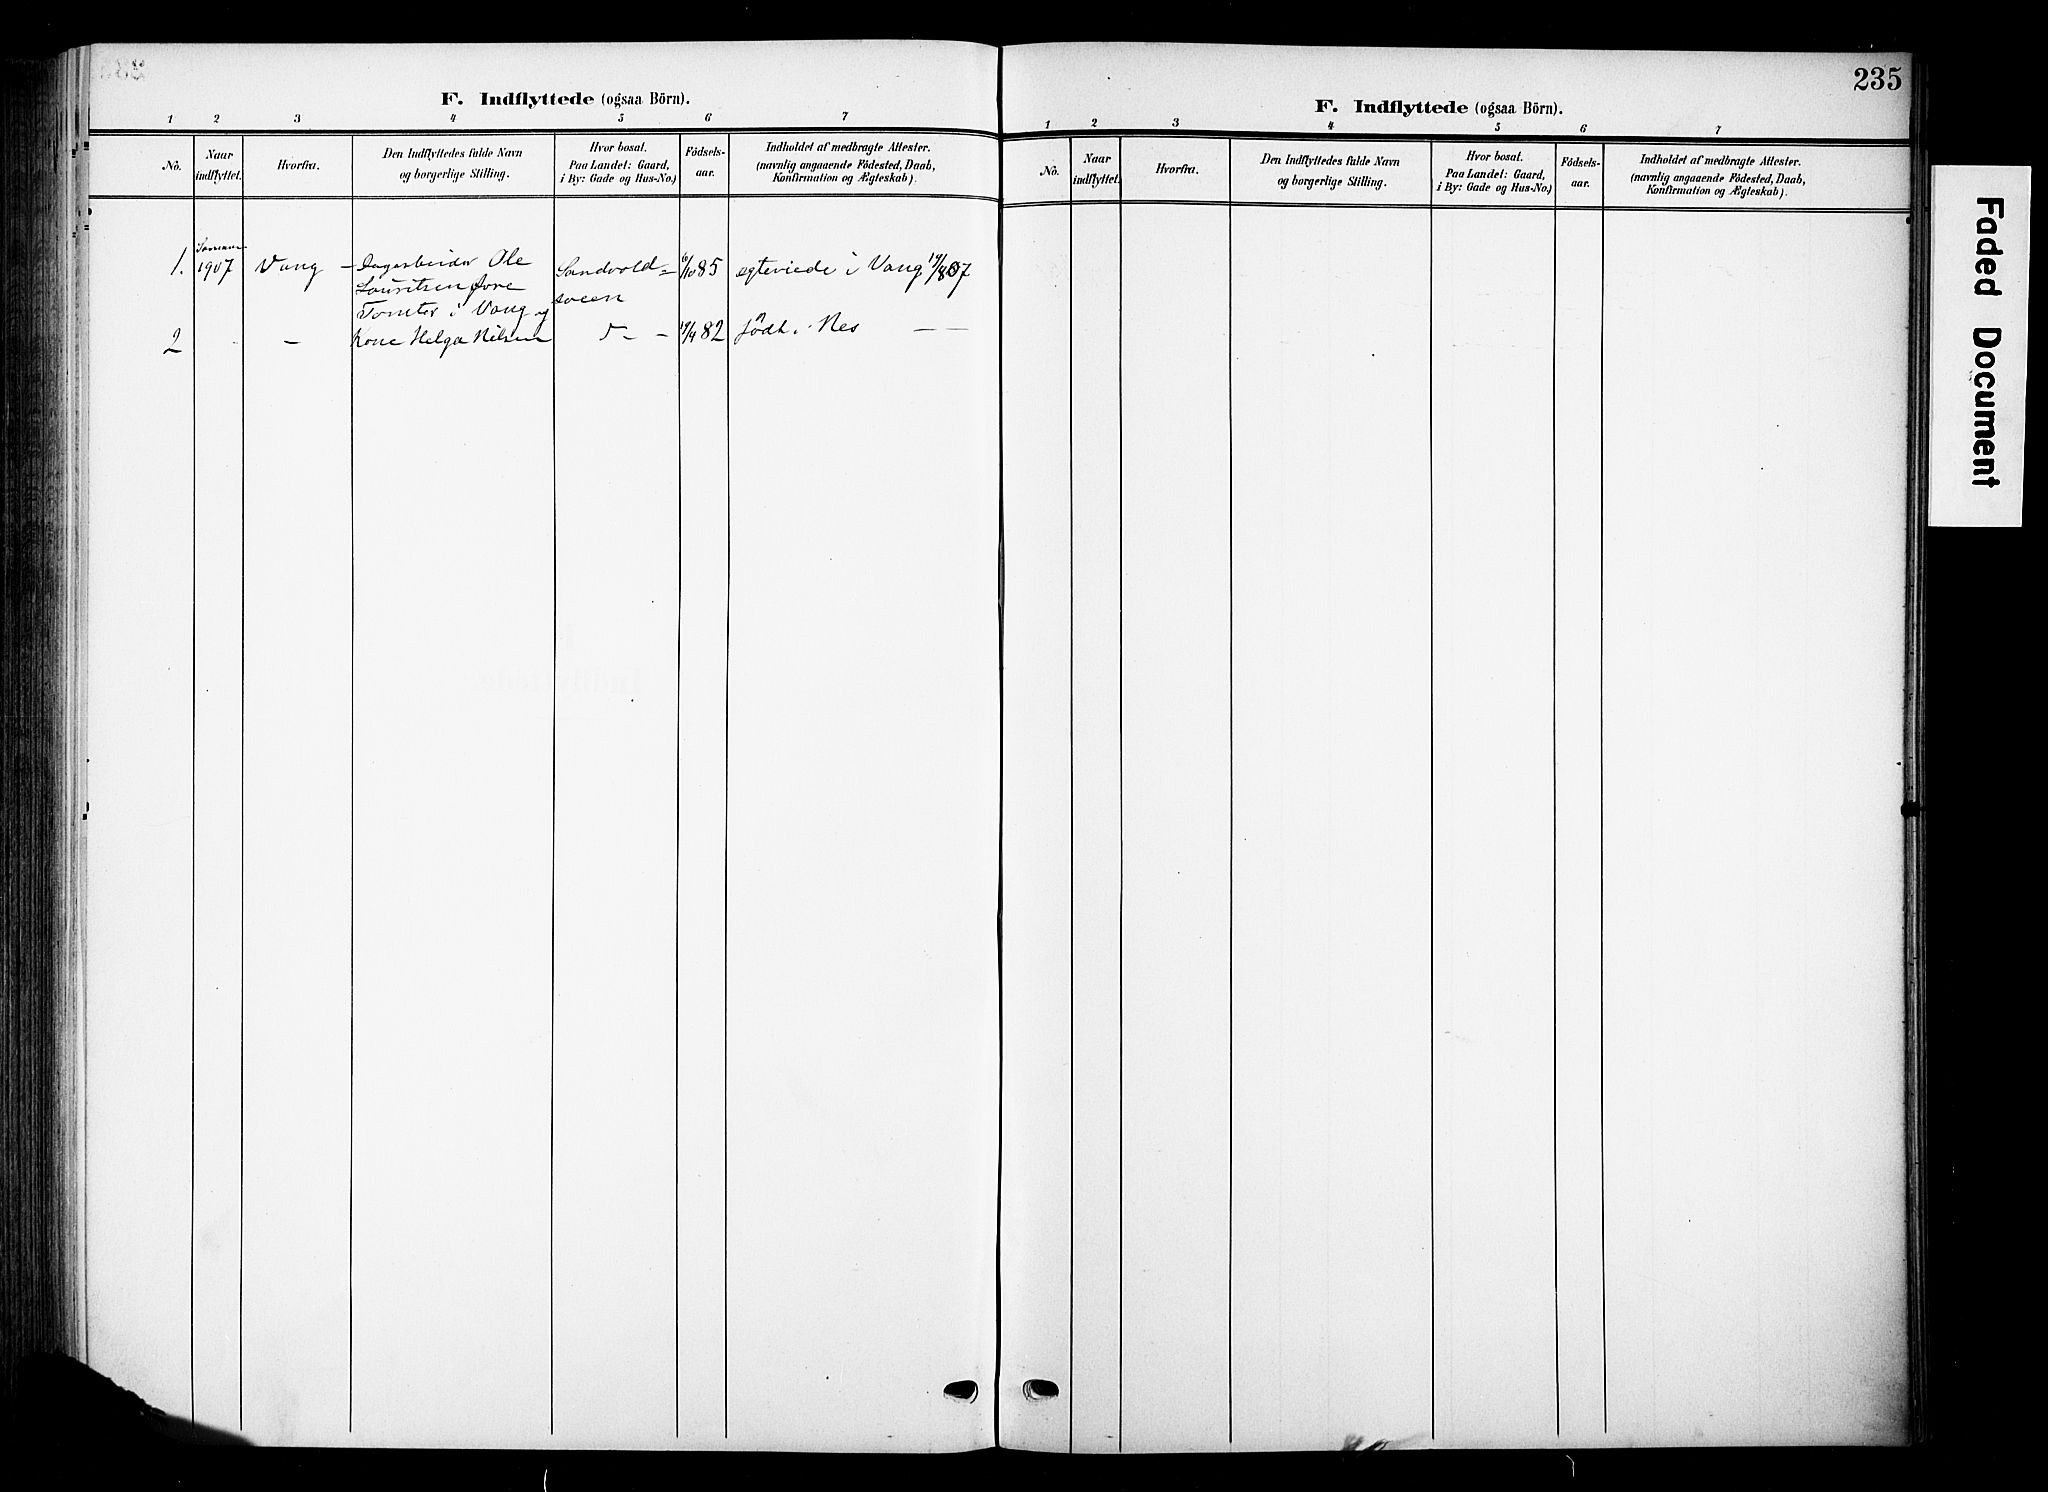 235
F. Indflyttede (ogsaa Börn).
1 2 3 4 5 6 7
No.
Naar
indflyttet.
Hvorfra.
Den Indflyttedes fulde Navn
og borgerlige Stilling.
Hvor bosat.
Paa Landet: Gaard,
i By: Gade og Hus-No.)
Födsels-
aar.
Indholdet af medbragte Attester.
(navnlig angaaende Födested, Daab,
Konfirmation og Ægteskab).
1. 1907 Vang - Dagarbeider Ole Sandvold= 6/10 85 egteviede i Vang 14/8 07
Lauritsen øvre
Tomter i Vang og
2 - Kone Helga Nilsen - 82 födt i Nes - -
F. Indflyttede (ogsaa Börn).
1 2 3 4 5 6 7
No.
Naar
indflyttet.
Hvorfra.
Den Indflyttedes fulde Navn
og borgerlige Stilling.
Hvor bosat.
Paa Landet: Gaard,
i By: Gade og Hus-No.)
Födsels-
aar.
Indholdet af medbragte Attester.
(navnlig angaaende Födested, Daab,
Konfirmation og Ægteskab).
Faded Document